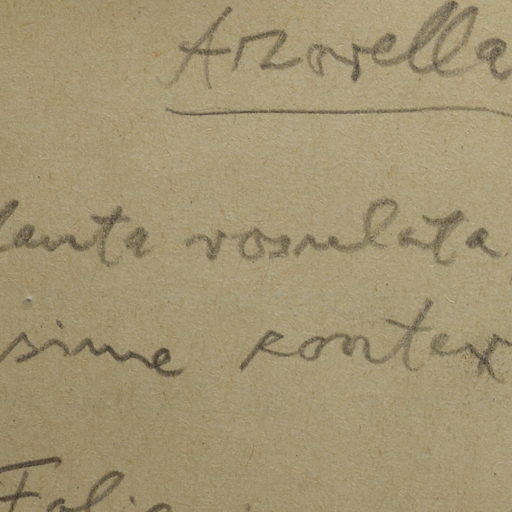 Azorella
lanta rosulata
sime contex
Folia